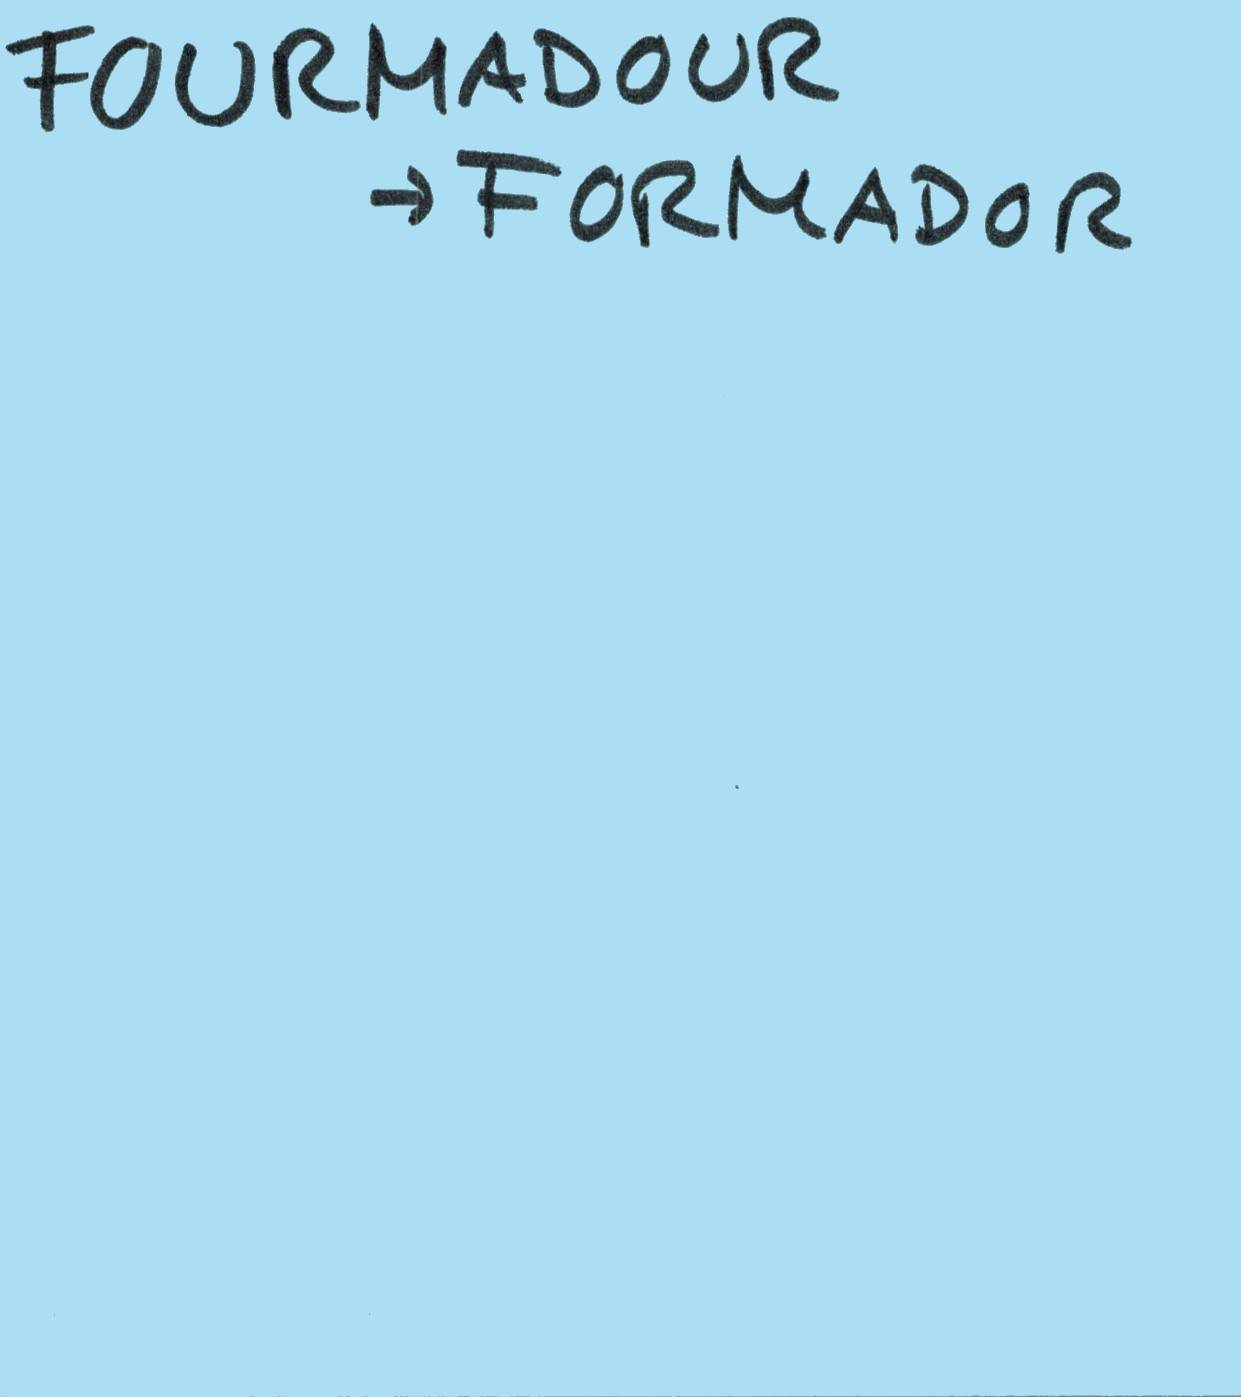 FOURMADOUR
→ FORMADOR